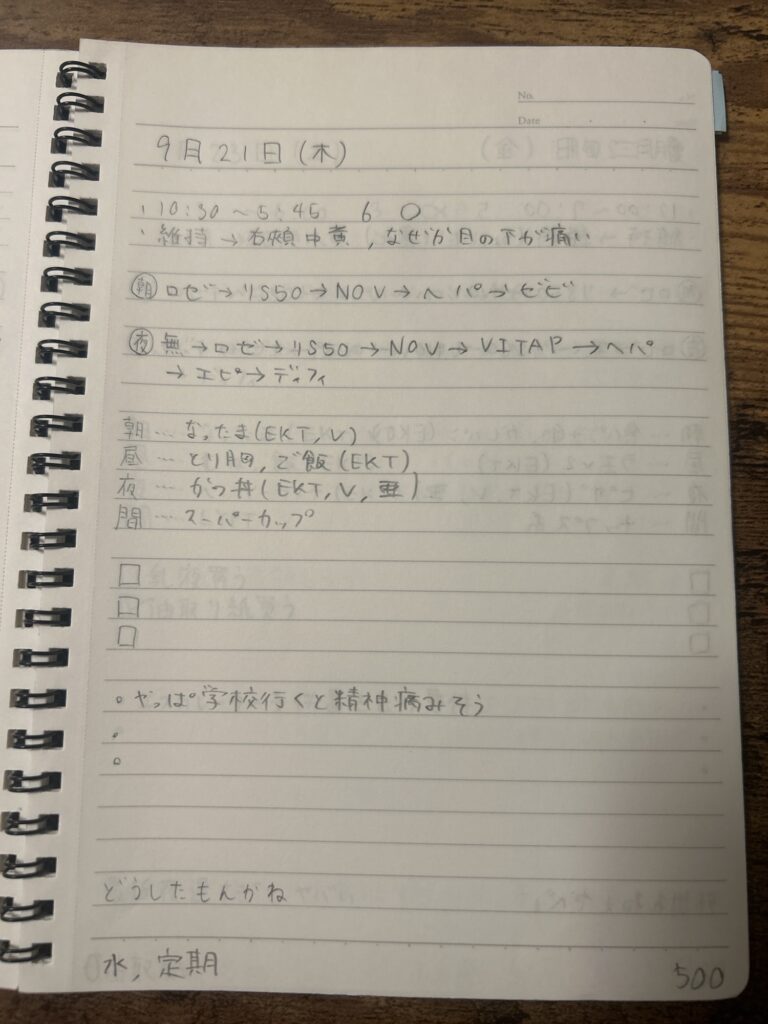 No.
Date
9月21日(木)
・10:30～5:45 6 〇
・維持→右頬中黄,なぜか目の下が痛い
朝 ロゼ→リS50→NOV→ヘパ→ビビ
夜 無→ロゼ→リS50→NOV→VITAP→ヘパ
→エピ→ディフィ
朝…なったま(EKT,V)
昼…とり胸,ご飯(EKT)
夜…かつ丼(EKT,V,亜)
間…スーパーカップ
□
□
□
◦やっぱ学校行くと精神病みそう
◦
◦
どうしたもんかね
水,定期
500